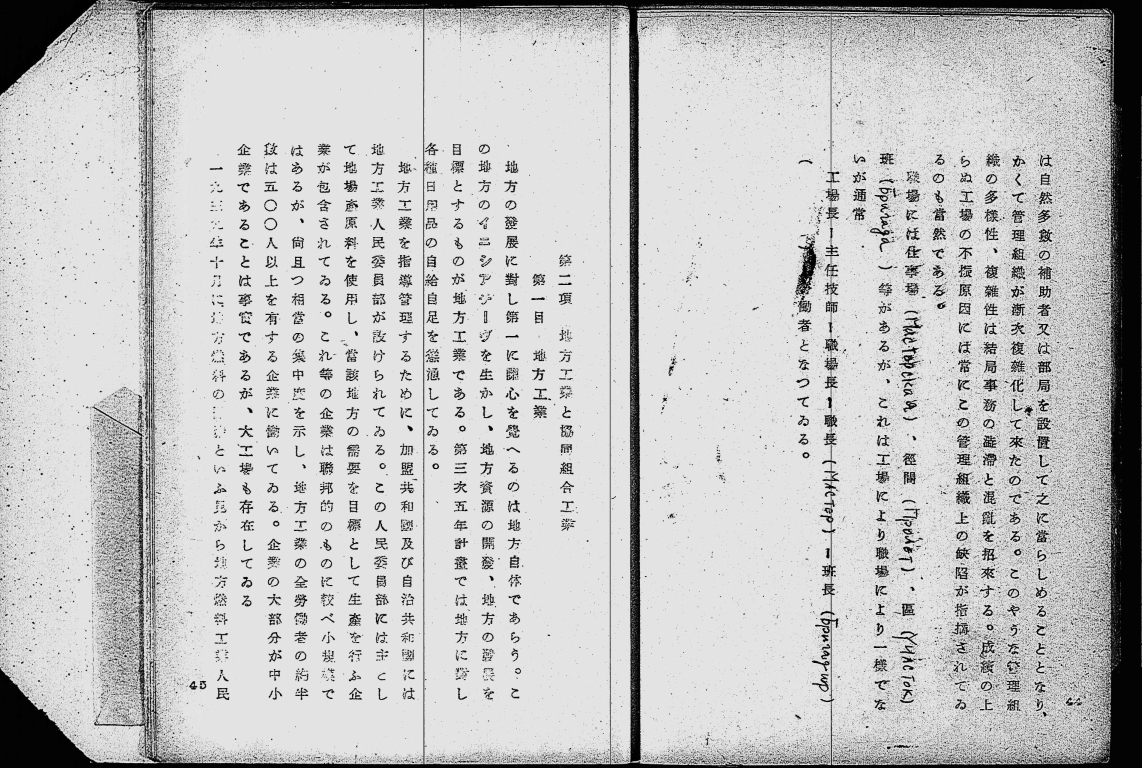 は自然多数の補助者又は部局を設置して之に當らしめることとなり、
かくて管理組織が漸次複雜化して來たのである。このやうな管理組
織の多樣性、複雜性は結局事務の澁滯と混亂を招來する。成績の上
らぬ工場の不振原因には常にこの管理組織上の缺陷が指摘されてゐ
るのも當然である。
職場には仕事場(Мастерская)、徑間(Пролёт)、區(Участок)
班(бригада)等があるが、これは工場により職場により一樣でな
いが通常
工場長ー主任技師ー職場長ー職長(Мастер)ー班長(бригадир)
(
働者となつてゐる。
44
第二項 地方工業と協同組合工業
第一目 地方工業
地方の發展に對し第一に關心を覺へるのは地方自体であらう。こ
の地方のイニシアチーヴを生かし、地方資源の開發、地方の發展を
目標とするものが地方工業である。第三次五年計畫では地方に對し
各種日用品の自給自足を慫慂してゐる。
地方工業を指導管理するために、加盟共和國及び自治共和國には
地方工業人民委員部が設けられてゐる。この人民委員部には主とし
て地場產原料を使用し、當該地方の需要を目標として生產を行ふ企
業が包含されてゐる。これ等の企業は聯邦的のものに較べ小規模で
はあるが、尙且つ相當の集中度を示し、地方工業の全勞働者の約半
数は五〇〇人以上を有する企業に働いてゐる。企業の大部分が中小
企業であることは事實であるが、大工場も存在してゐる
一九三九年十月に地方燃料の といふ見から地方燃料工業人民
45